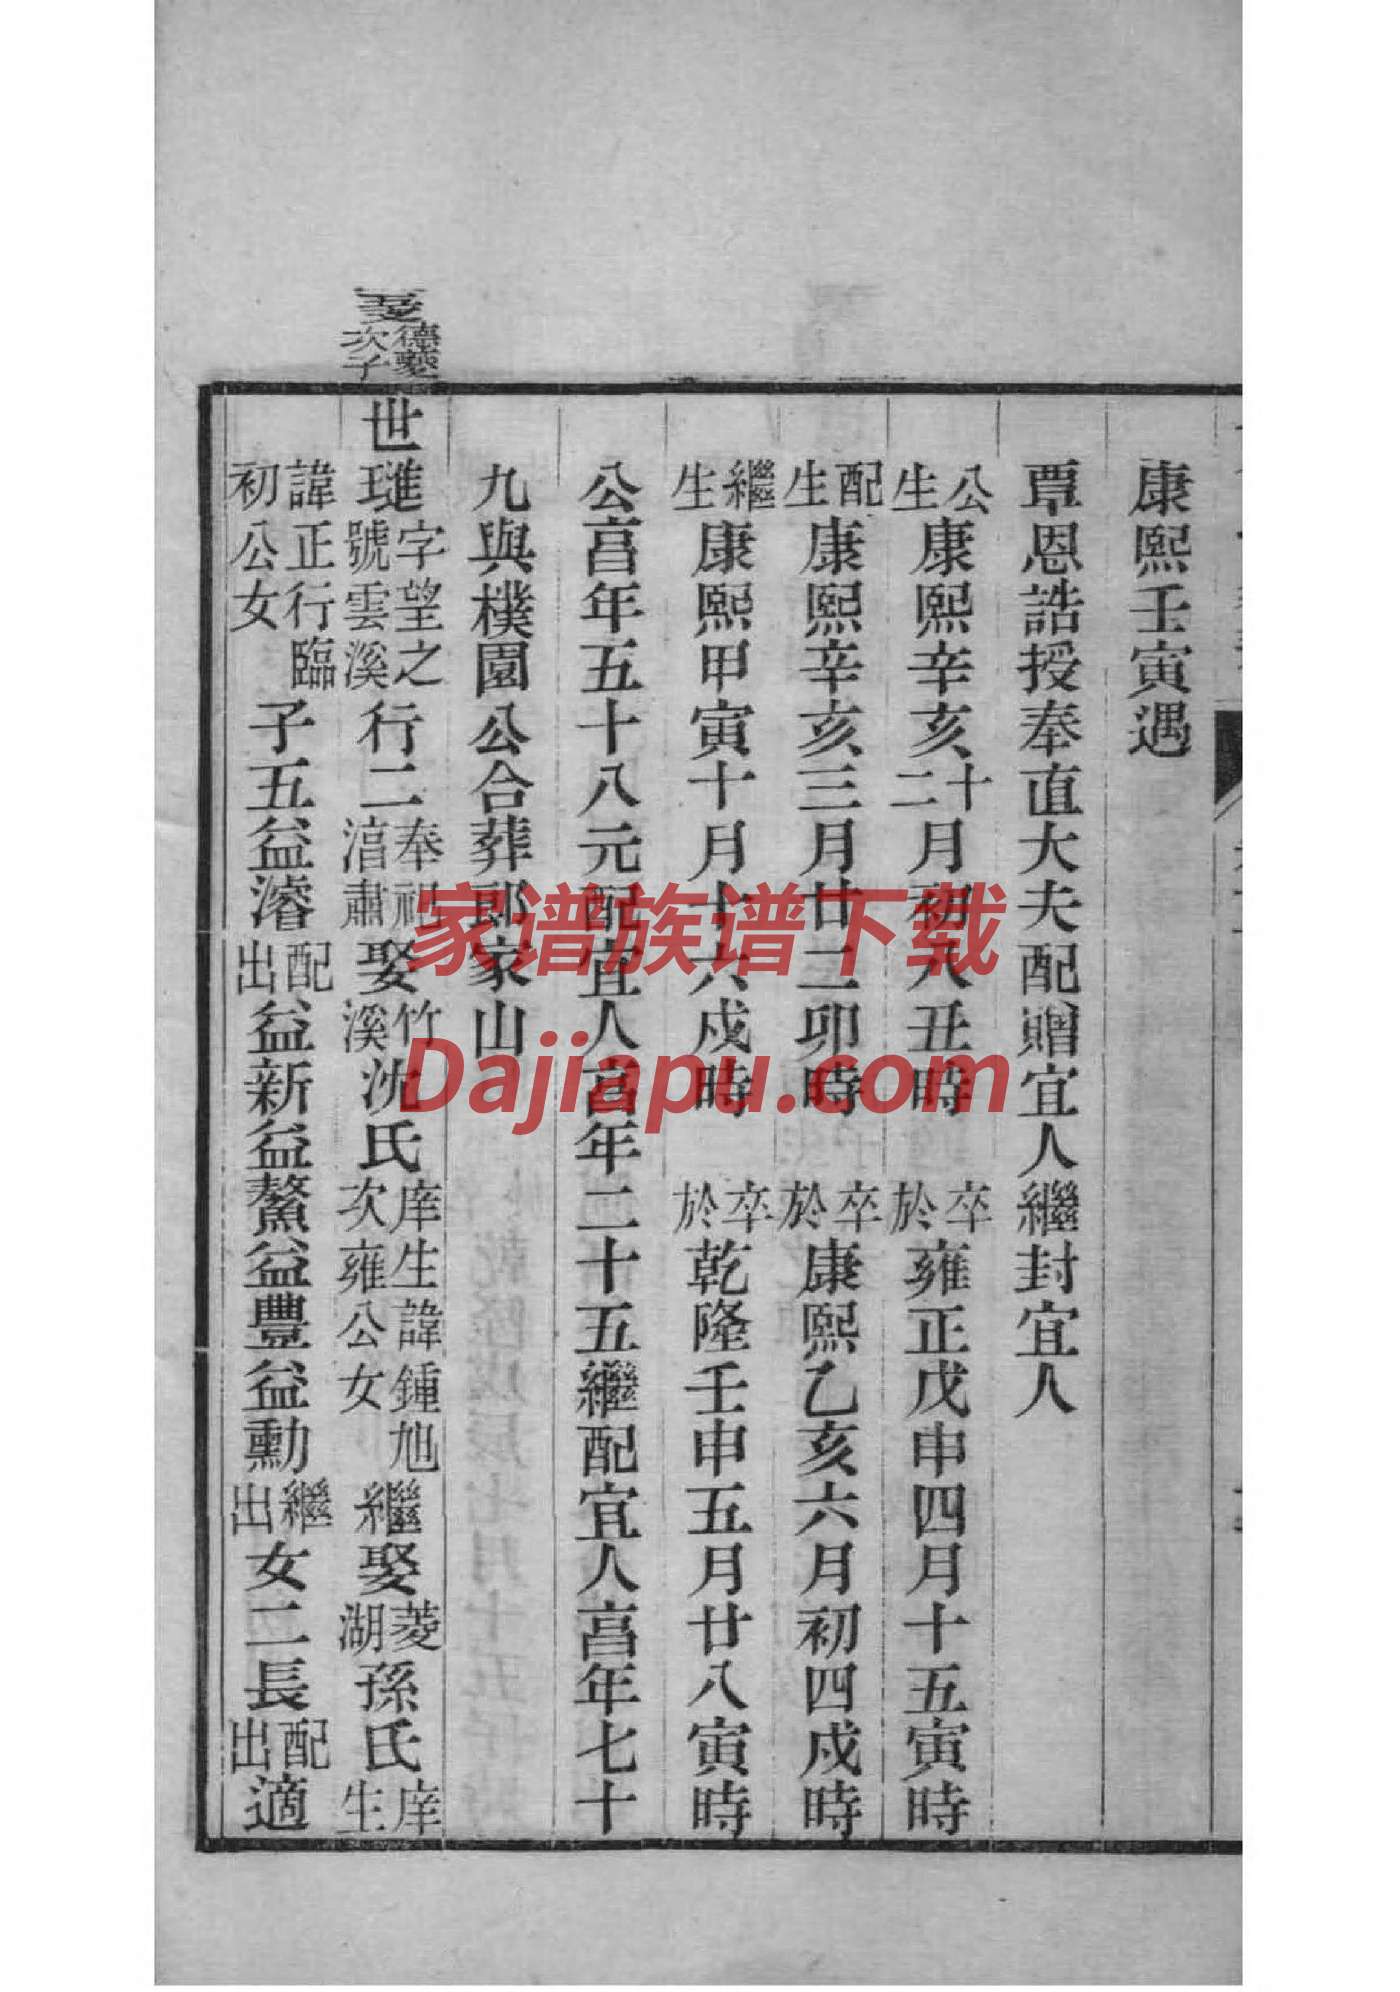 康熙壬寅遇
覃恩誥授奉直大夫配贈宜人繼封宜人
公生康熙辛亥十二月初八丑時 卒於雍正戊申四月十五寅時
配生康熙辛亥三月廿二卯時 卒於康熙乙亥六月初四戌時
繼生康熙甲寅十月十六戌時 卒於乾隆壬申五月廿八寅時
公亯年五十八元配宜人亯年二十五繼配宜人亯年七十
九與樸園公合葬郎家山
德夔次子
世璡字望之號雲溪行二奉祀淯肅娶竹溪沈氏庠生諱鍾旭次雍公女繼娶菱湖孫氏庠生
諱正行臨初公女子五益濬配出益新益鰲益豐益勳繼出女二長配出適
家谱族谱下载
Dajiapu.com